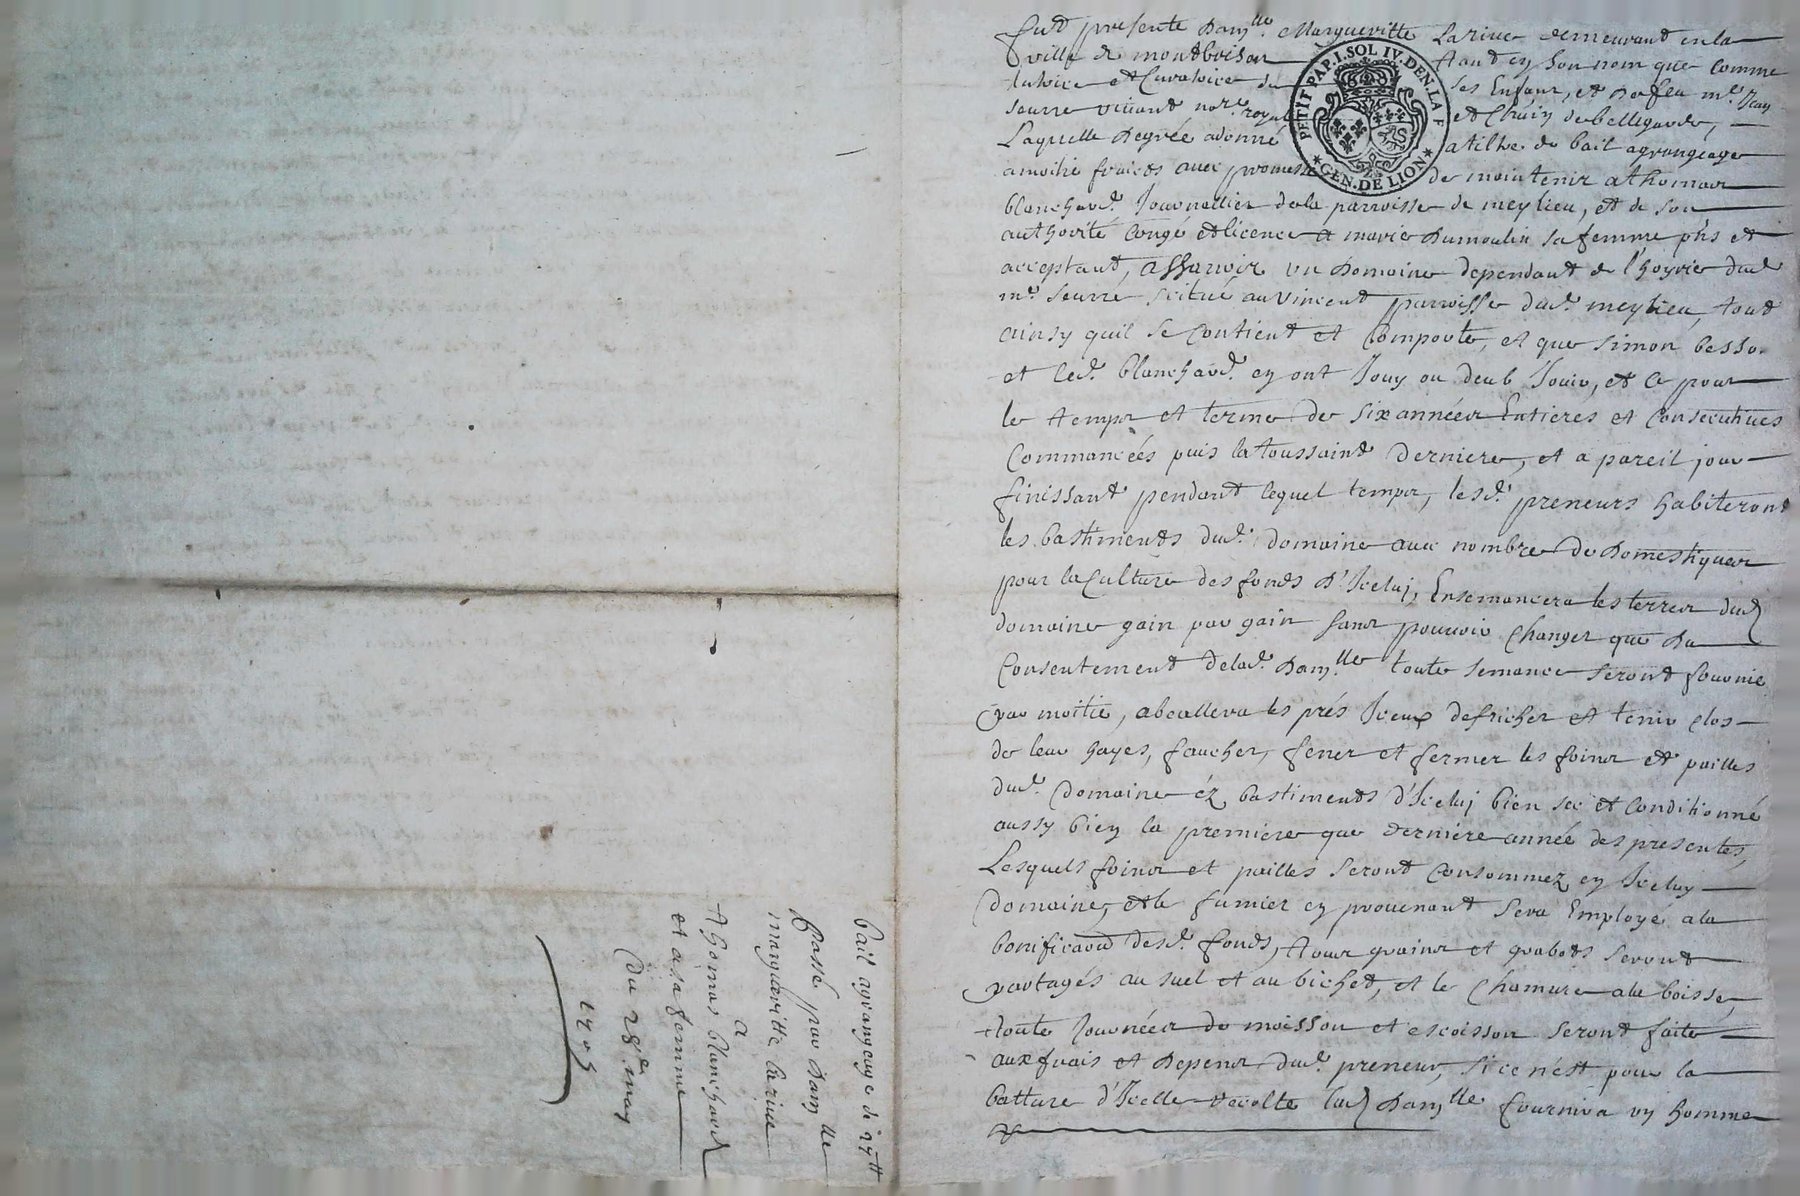 fut presente dam.lle Margueritte Larive demeurant en la
ville de montbrison tant en son nom que comme
tutrice et Curatrice de ses Enfans, et de feu m.e Jean
seurre vivant no.re royal et Chain de bellegarde,
Laquelle de gré a donné a tiltre de bail a grangeage
a moitié fruicts avec promesse de maintenir a thomas
blanchard Journallier de la parroisse de meylieu, et de son
authorité congé et licence a marie Dumoulin sa femme pns et
acceptant, assavoir un domaine dependant de l'hoyrie dud.
m.e seurre scitué au vincent parroisse dud. meylieu, tout
ainsy quil se Contient et Comporte, et que simon besson
et led. blanchard en ont Jouy ou deub Jouir, et ce pour
le temps et terme de six années Entieres et Consecutives
Commancées puis la toussaint derniere, et a pareil jour
finissant pendant lequel temps, lesd. preneurs habiteront
les bastiments dud. domaine avec nombre de domestiques
pour la Culture des fonds d'Iceluj, Ensemancera les terres dud.
domaine gain par gain sans pouvoir changer que du
Consentement de lad. dam.lle toute semance seront fournie
par moitié, abeallera les prés Iceux defricher et tenir clos
de leur hayes, faucher, fener et fermer les foins et pailles
dud. domaine éz bastiments d'Iceluj bien sec et conditionné
aussy bien la premiere que derniere année des presentes,
Lesquels foins et pailles seront Consommez en Iceluy
domaine, et le fumier en provenant sera Employé a la
bonification desd. fonds, tous grains et grabots seront
partagés au suel et au bichet, et le Chamure a la boisse,
toute Journées de moisson et escoisson seront faite
aux frais et depens dud. preneur, si ce n'est pour la
batture d'Icelle recolte lad. dam.lle fournira un homme
bail agrangeage de
passé par dam.lle
margueritte larive
a
thomas blanchard
et a sa femme
du 28.e may
1705
PETIT PAP. I. SOL IV. DEN. LA F
GEN. DE LION